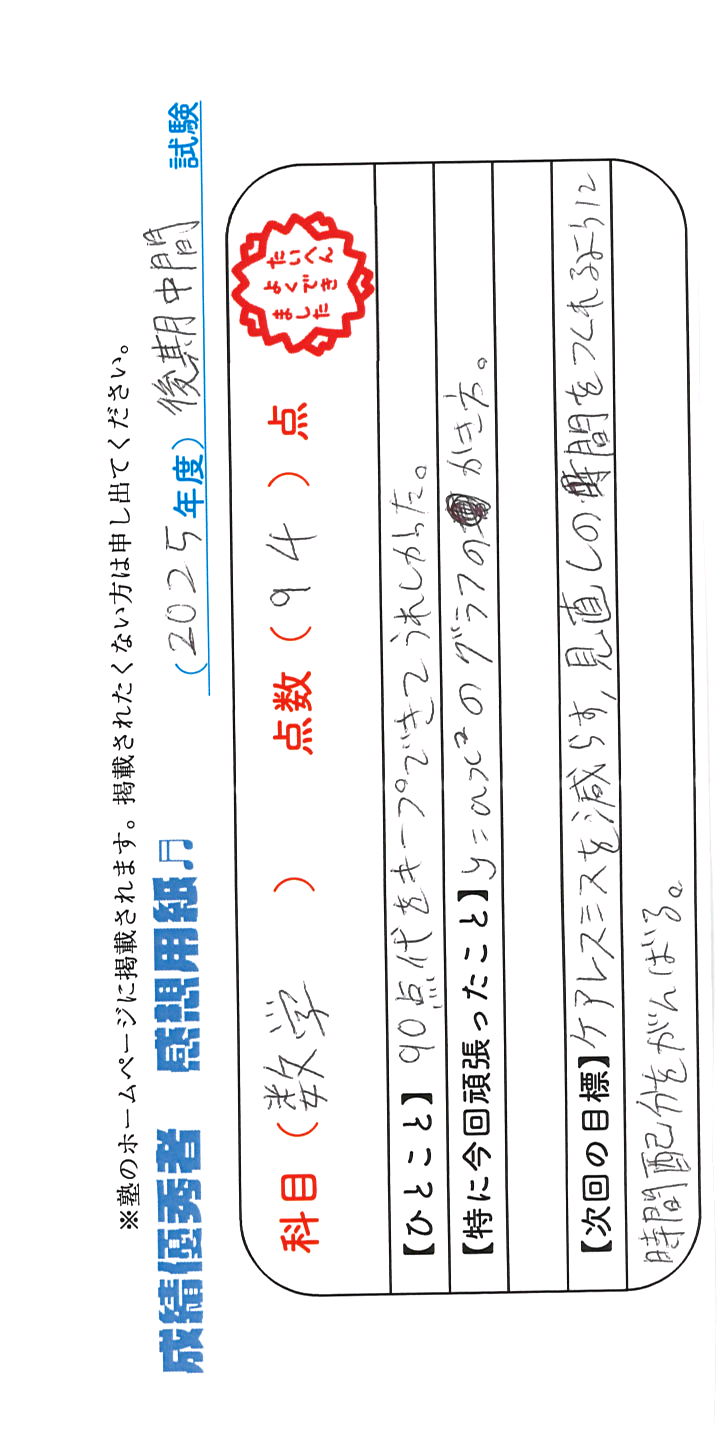 ※塾のホームページに掲載されます。掲載されたくない方は申し出てください。
成績優秀者 感想用紙♫ (2025年度) 後期中間 試験
科目 ( 数学 ) 点数 ( 94 ) 点
たいへん
よくでき
ました
【ひとこと】90点代をキープできてうれしかった。
【特に今回頑張ったこと】y=ax²のグラフの かき方。
【次回の目標】ケアレスミスを減らす, 見直しの時間をつくれるように
時間配分をがんばる。